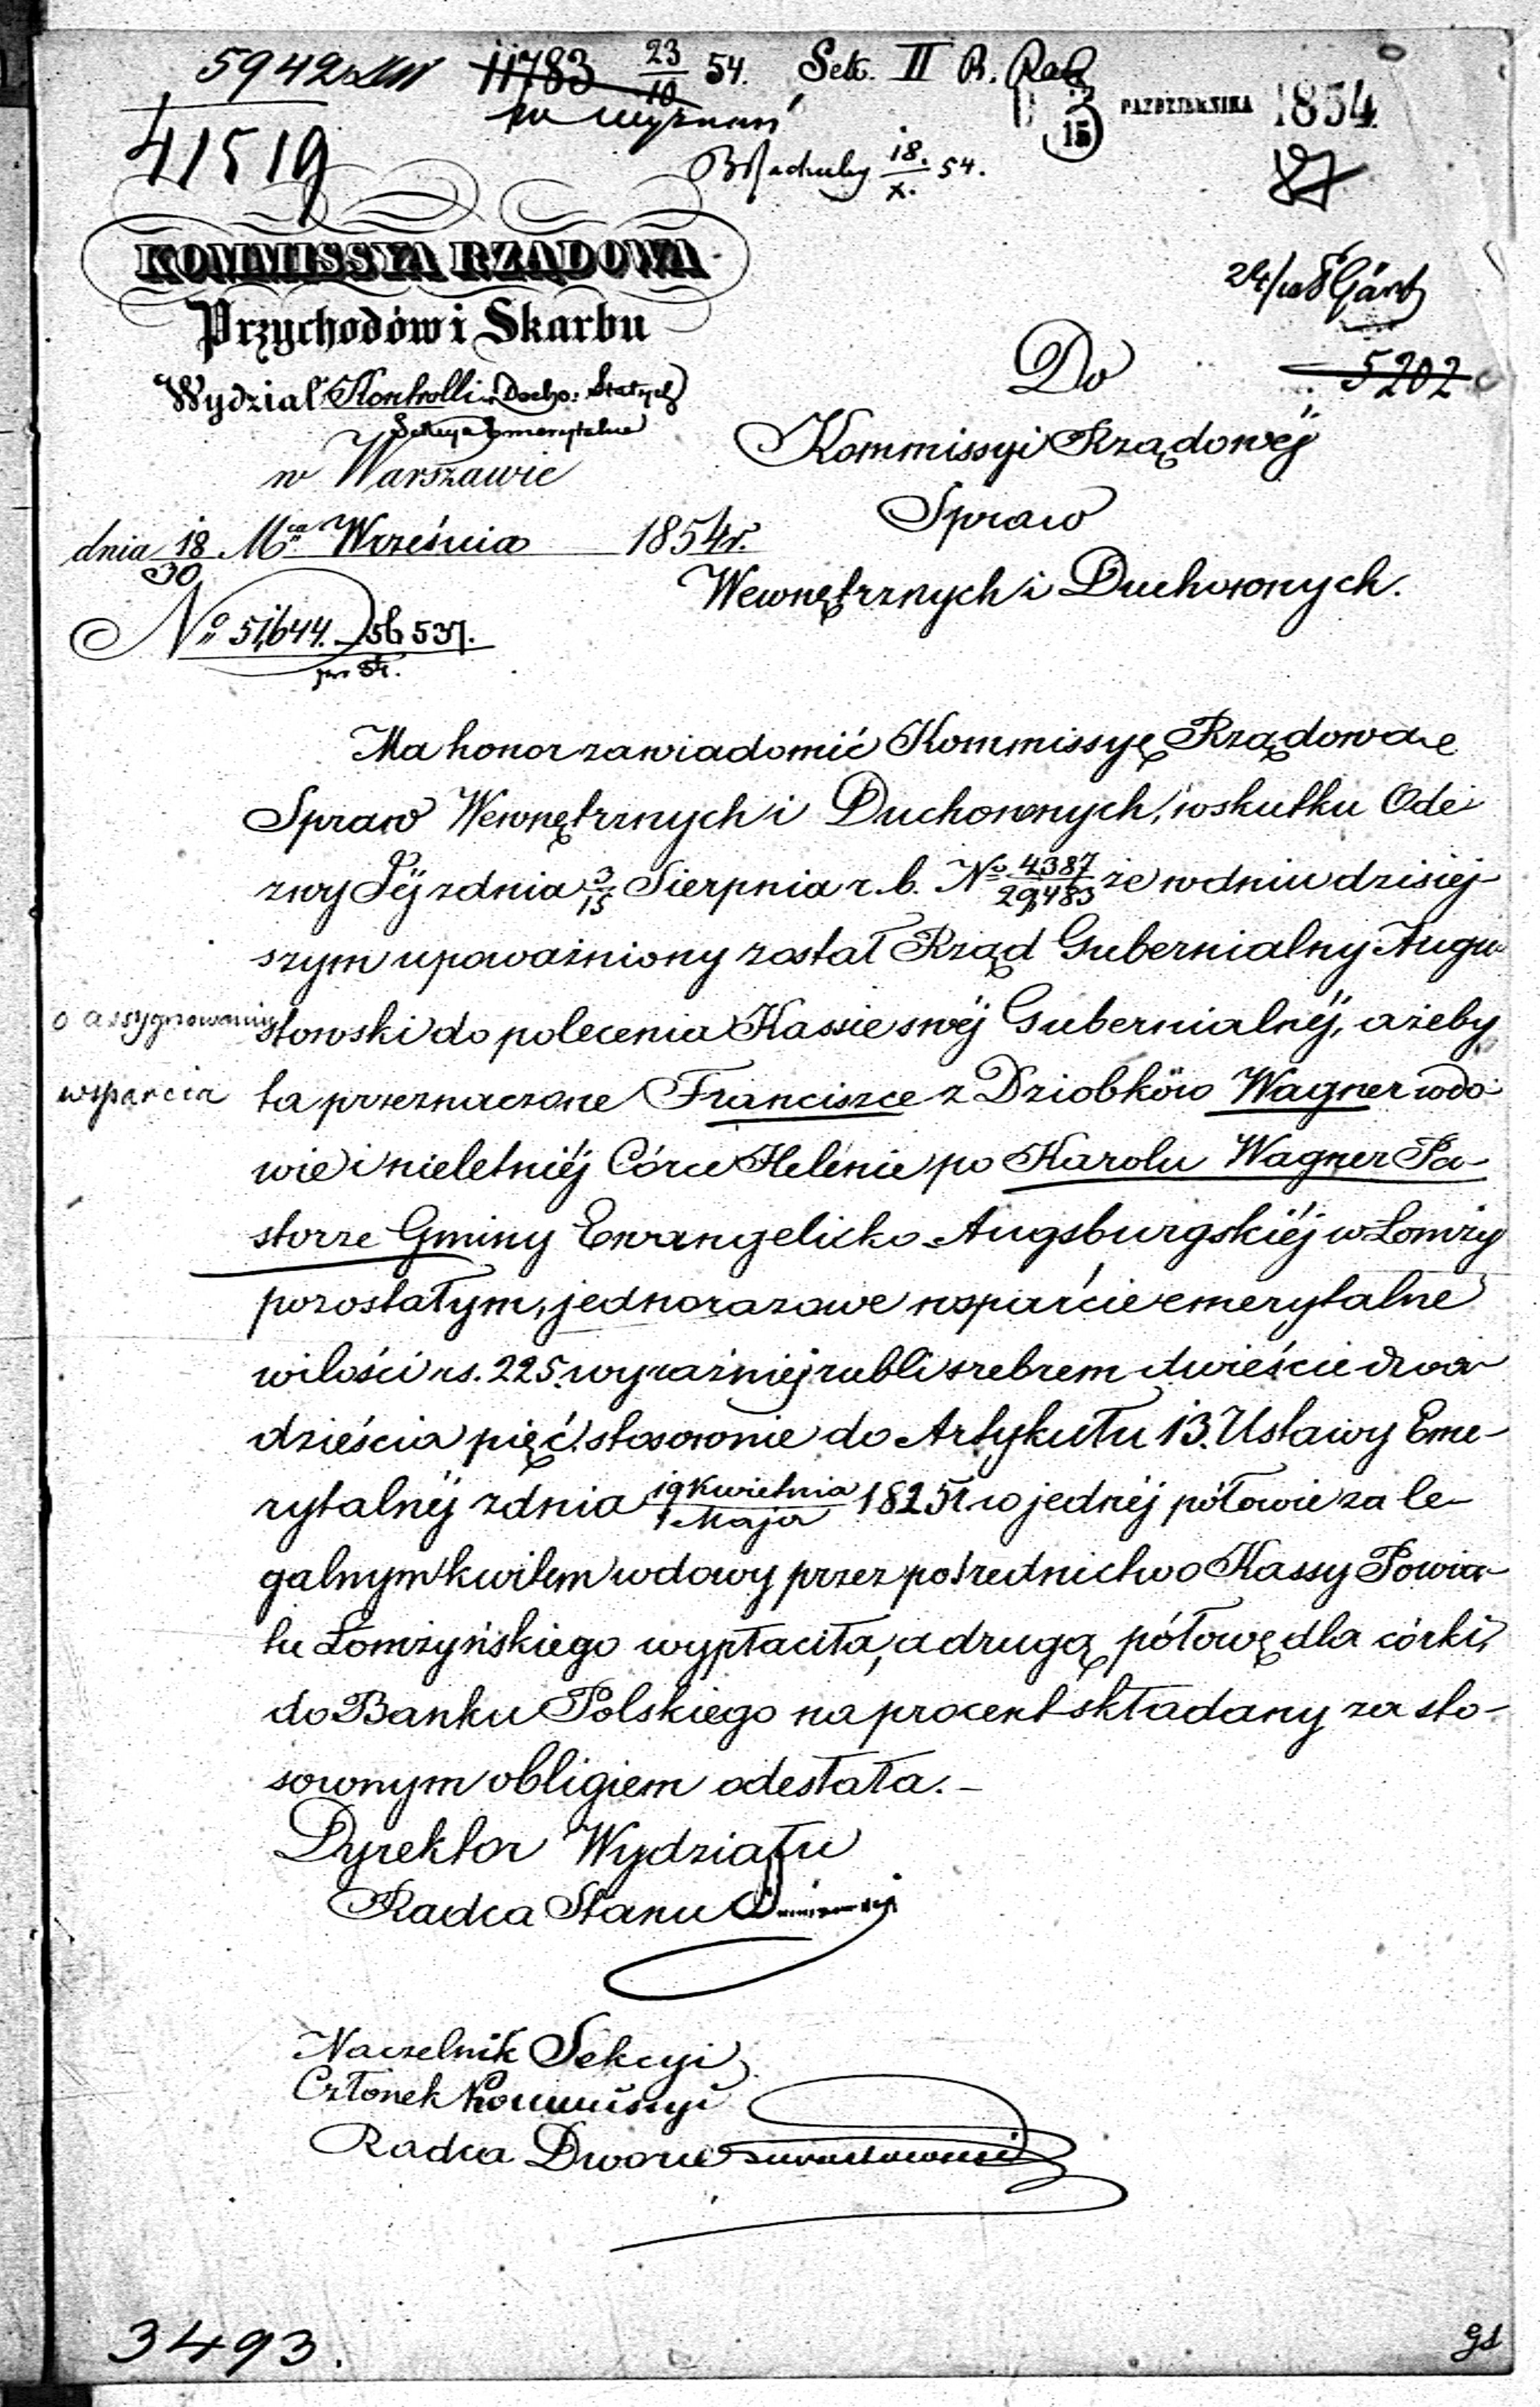 5942
11783 23/10 54. Sek. II R.
41519
PAZDZIERNIKA 1854
3/15
18./X. 54.
87
KOMMISSYA RZĄDOWA
Przychodów i Skarbu
5202
Wydział Kontrolli i Docho: Stałych
Sekcya Emerytalna
w Warszawie
dnia 18/30 Mca Września 1854 r.
No 51,644. / 56 537.
Do
Kommissyi Rządowéj
Spraw
Wewnętrznych i Duchownych.
Ma honor zawiadomić Kommissyę Rządową
Spraw Wewnętrznych i Duchownych, wskutku Ode
zwy Jéj z dnia 3/15 Sierpnia r. b. No 4387/29,483 że w dniu dzisiéj-
szym upoważniony został Rząd Gubernialny Augu-
o assygnowaniu
wsparcia
stowski do polecenia Kassie swéj Gubernialnéj, ażeby
ta przeznaczone Franciszce z Dziobków Wagner wdo-
wie i nieletniéj Córce Helenie po Karolu Wagner Pa-
storze Gminy Ewangelicko-Augsburgskiéj w Łomży
pozostałym, jednorazowe wsparcie emerytalne
w ilości rs. 225. wyraźniej rubli srebrem dwieście dwa
dzieścia pięć, stosownie do Artykułu 13. Ustawy Eme-
rytalnéj z dnia 19 Kwietnia/1 Maja 1825 r. w jednéj półowie za le-
galnym kwitem wdowy przez pośrednictwo Kassy Powia-
tu Łomżyńskiego wypłaciła, a drugą półowę dla córki,
do Banku Polskiego na procent składany za sto-
sownym obligiem odesłała. –
Dyrektor Wydziału
Radca Stanu
Naczelnik Sekcyi
Członek Kommissyi
Radca Dworu
3493.